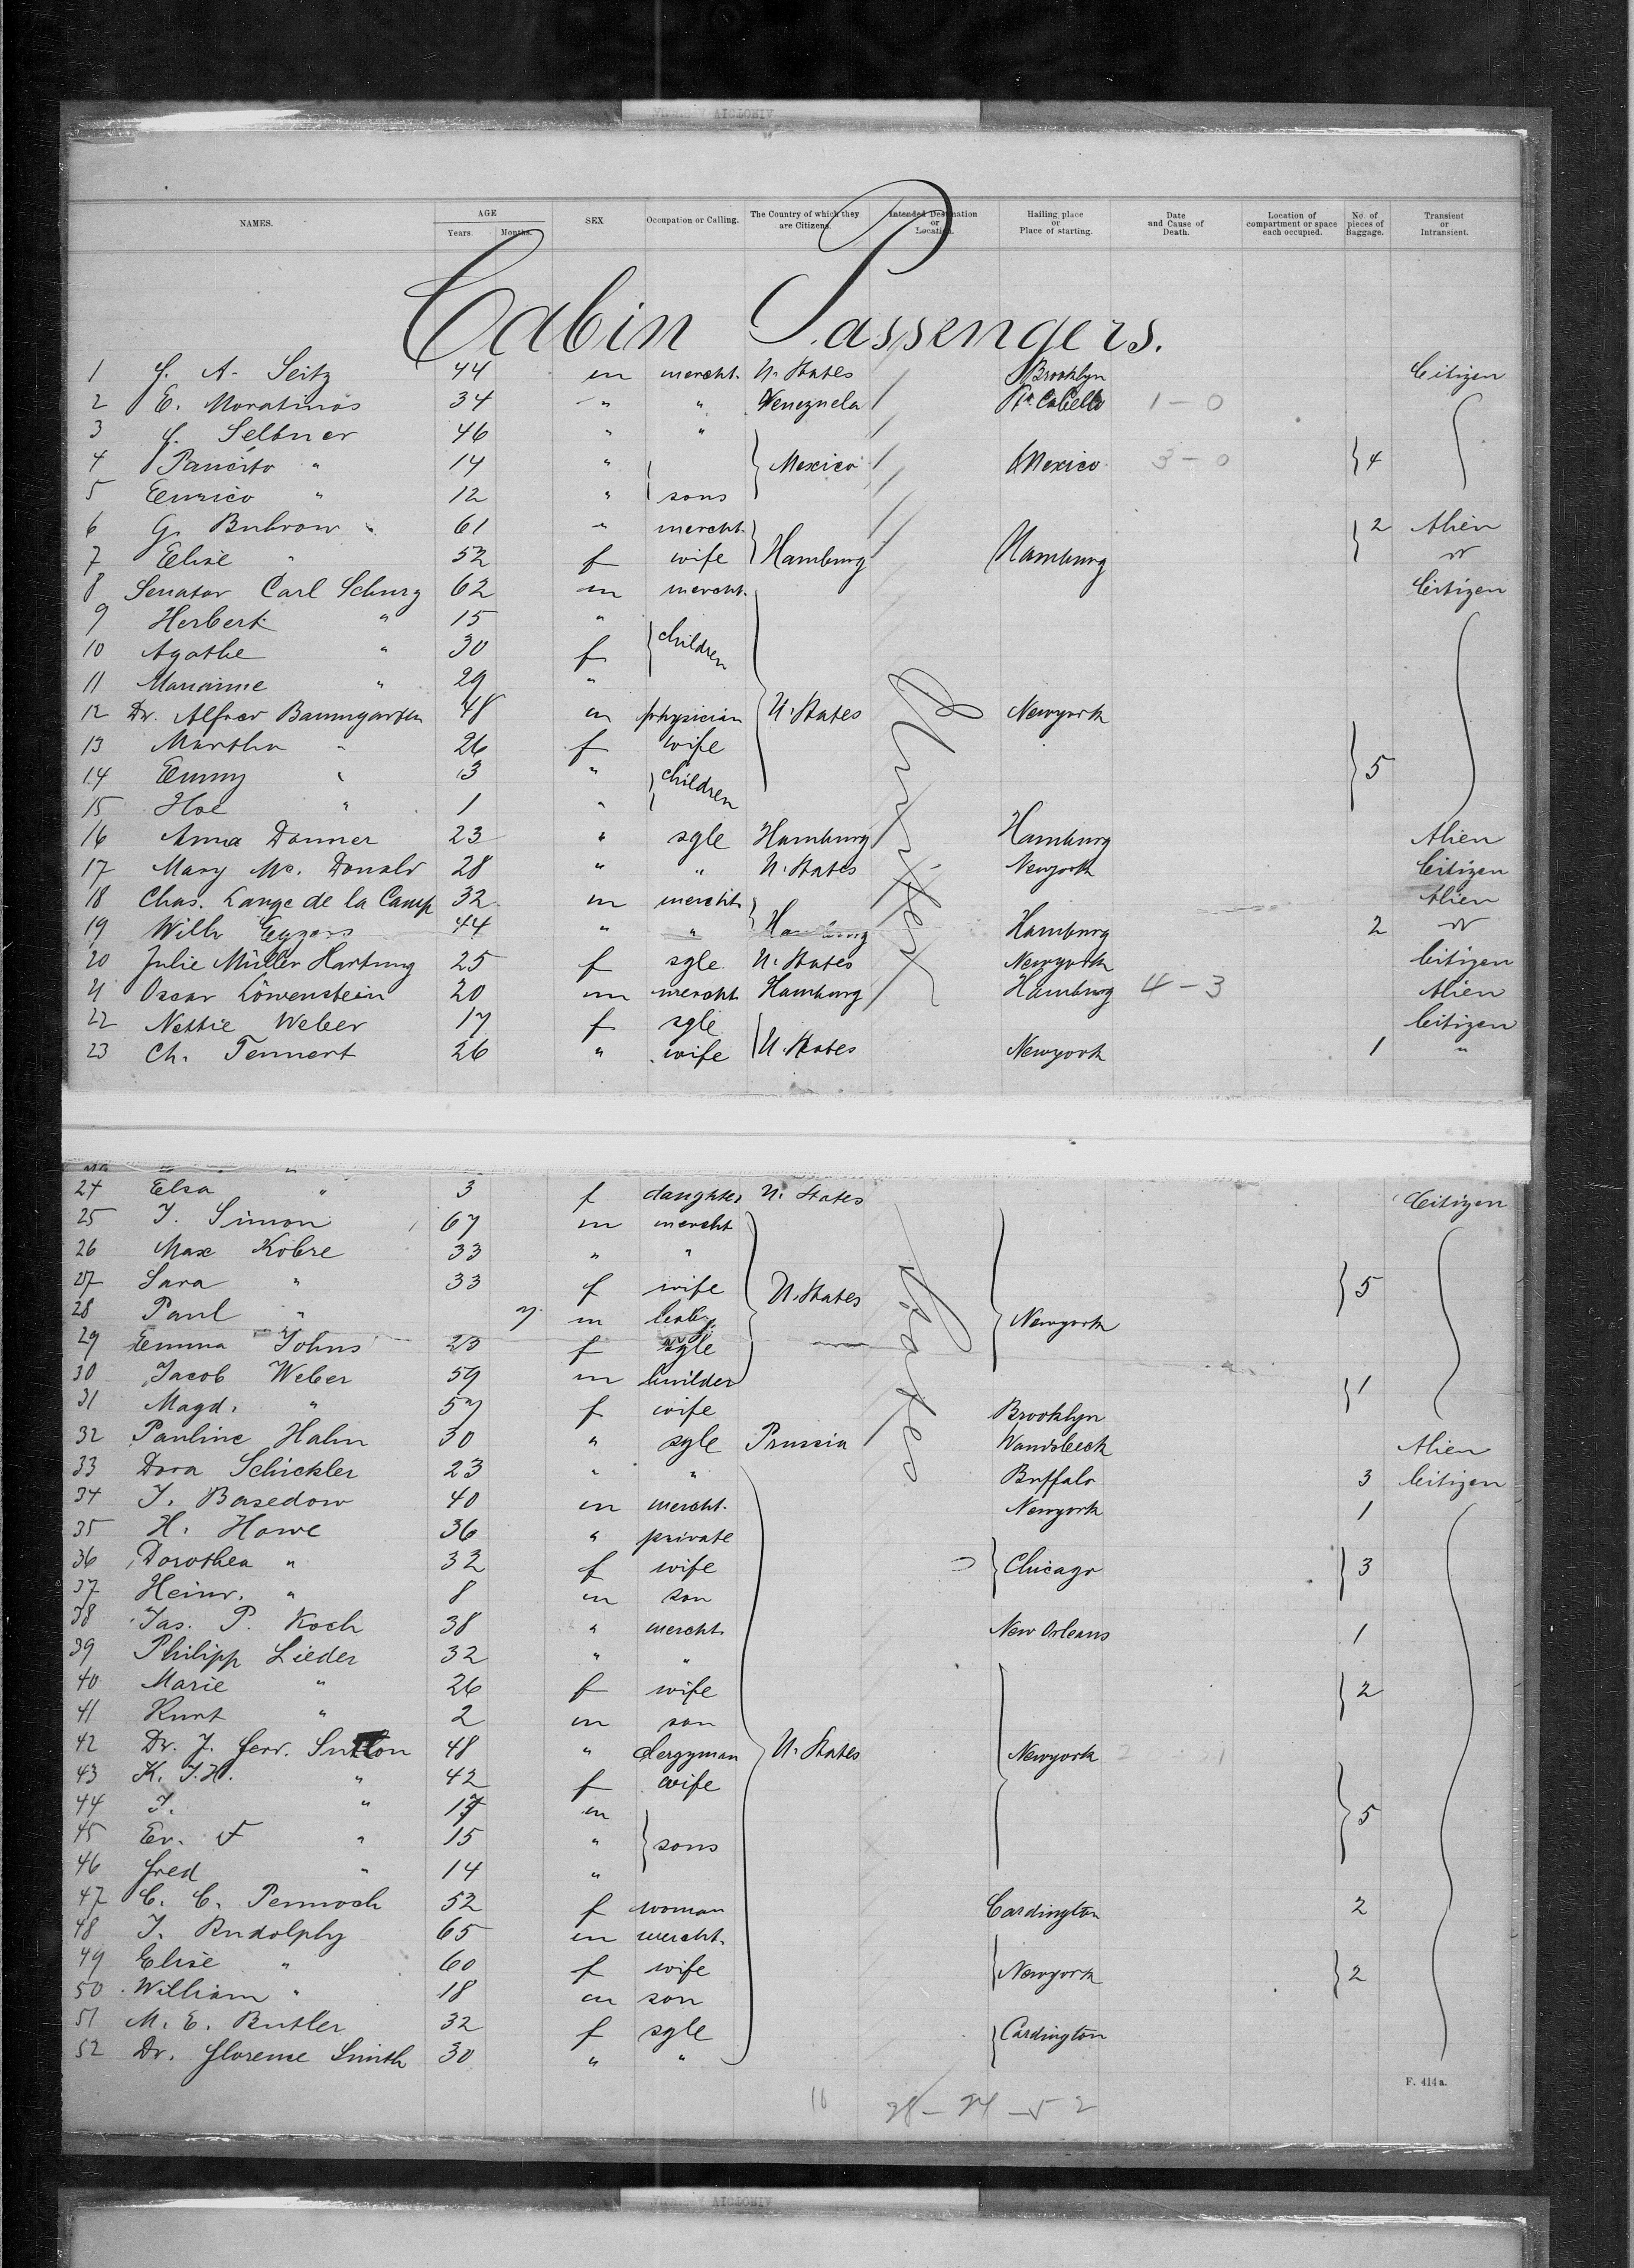 NAMES. AGE Years. Months. SEX Occupation or Calling. The Country of which they are Citizens. Intended Destination or Location. Hailing place or Place of starting. Date and Cause of Death. Location of compartment or space each occupied. No. of pieces of Baggage. Transient or Intransient.
Cabin Passengers.
1 J. A. Seitz 44 m mercht. U. States Brooklyn Citizen
2 E. Moratinos 34 " " Venezuela Pto. Cabello 1 - 0
3 J. Selbner 46 " "
4 Pancito " 14 " Mexico Mexico 3 - 0 4
5 Enrico " 12 " sons
6 G. Bubrow 61 " mercht. 2 Alien
7 Elise " 52 f wife Hamburg Hamburg
8 Senator Carl Schurz 62 m mercht. Citizen
9 Herbert " 15 "
10 Agathe " 30 f children
11 Marianne " 29 "
12 Dr. Alfred Baumgarten 48 m physician U. States Newyork
13 Martha " 26 f wife
14 Emmy " 3 " children 5
15 " 1 "
16 Anna Donner 23 " sgle Hamburg Hamburg Alien
17 Mary Mc. Donald 28 " " U. States Newyork Citizen
18 Chas. Lange de la Camp 32 m mercht. Alien
19 Willy Eggers 44 " " Hamburg Hamburg 2
20 Julie Müller Hartung 25 f sgle U. States Newyork Citizen
21 Oscar Löwenstein 20 m mercht. Hamburg Hamburg 4 - 3 Alien
22 Nettie Weber 17 f sgle Citizen
23 Ch. Tennert 26 " wife U. States Newyork 1 "
24 Elsa " 3 f daughter U. States Citizen
25 J. Simon 67 m mercht
26 Max Kobre 33 " "
27 Sara " 33 f wife U. States 5
28 Paul " 7 m baby Newyork
29 Emma Johns 23 f sgle
30 Jacob Weber 59 m builder 1
31 Magd. " 57 f wife Brooklyn
32 Pauline Hahn 30 " sgle Prussia Wandsbeck Alien
33 Dora Schickler 23 " " Buffalo 3 Citizen
34 J. Basedow 40 m mercht. Newyork 1
35 H. Howe 36 " private
36 Dorothea " 32 f wife Chicago 3
37 Heinr. " 8 m son
38 Jas. P. Koch 38 " mercht. New Orleans 1
39 Philipp Lieder 32 " "
40 Marie " 26 f wife 2
41 Kurt " 2 m son
42 Dr. J. Ferd. Sutton 48 " clergyman U. States Newyork
43 K. J. H. " 42 f wife
44 J. " 17 m 5
45 Ev. F " 15 " sons
46 Fred " 14 "
47 C. C. Pennock 52 f woman Cardington 2
48 J. Rudolphy 65 m mercht.
49 Elise " 60 f wife Newyork 2
50 William " 18 m son
51 M. E. Butler 32 f sgle Cardington
52 Dr. Florence Smith 30 " "
F. 414a.
28 - 24 - 52